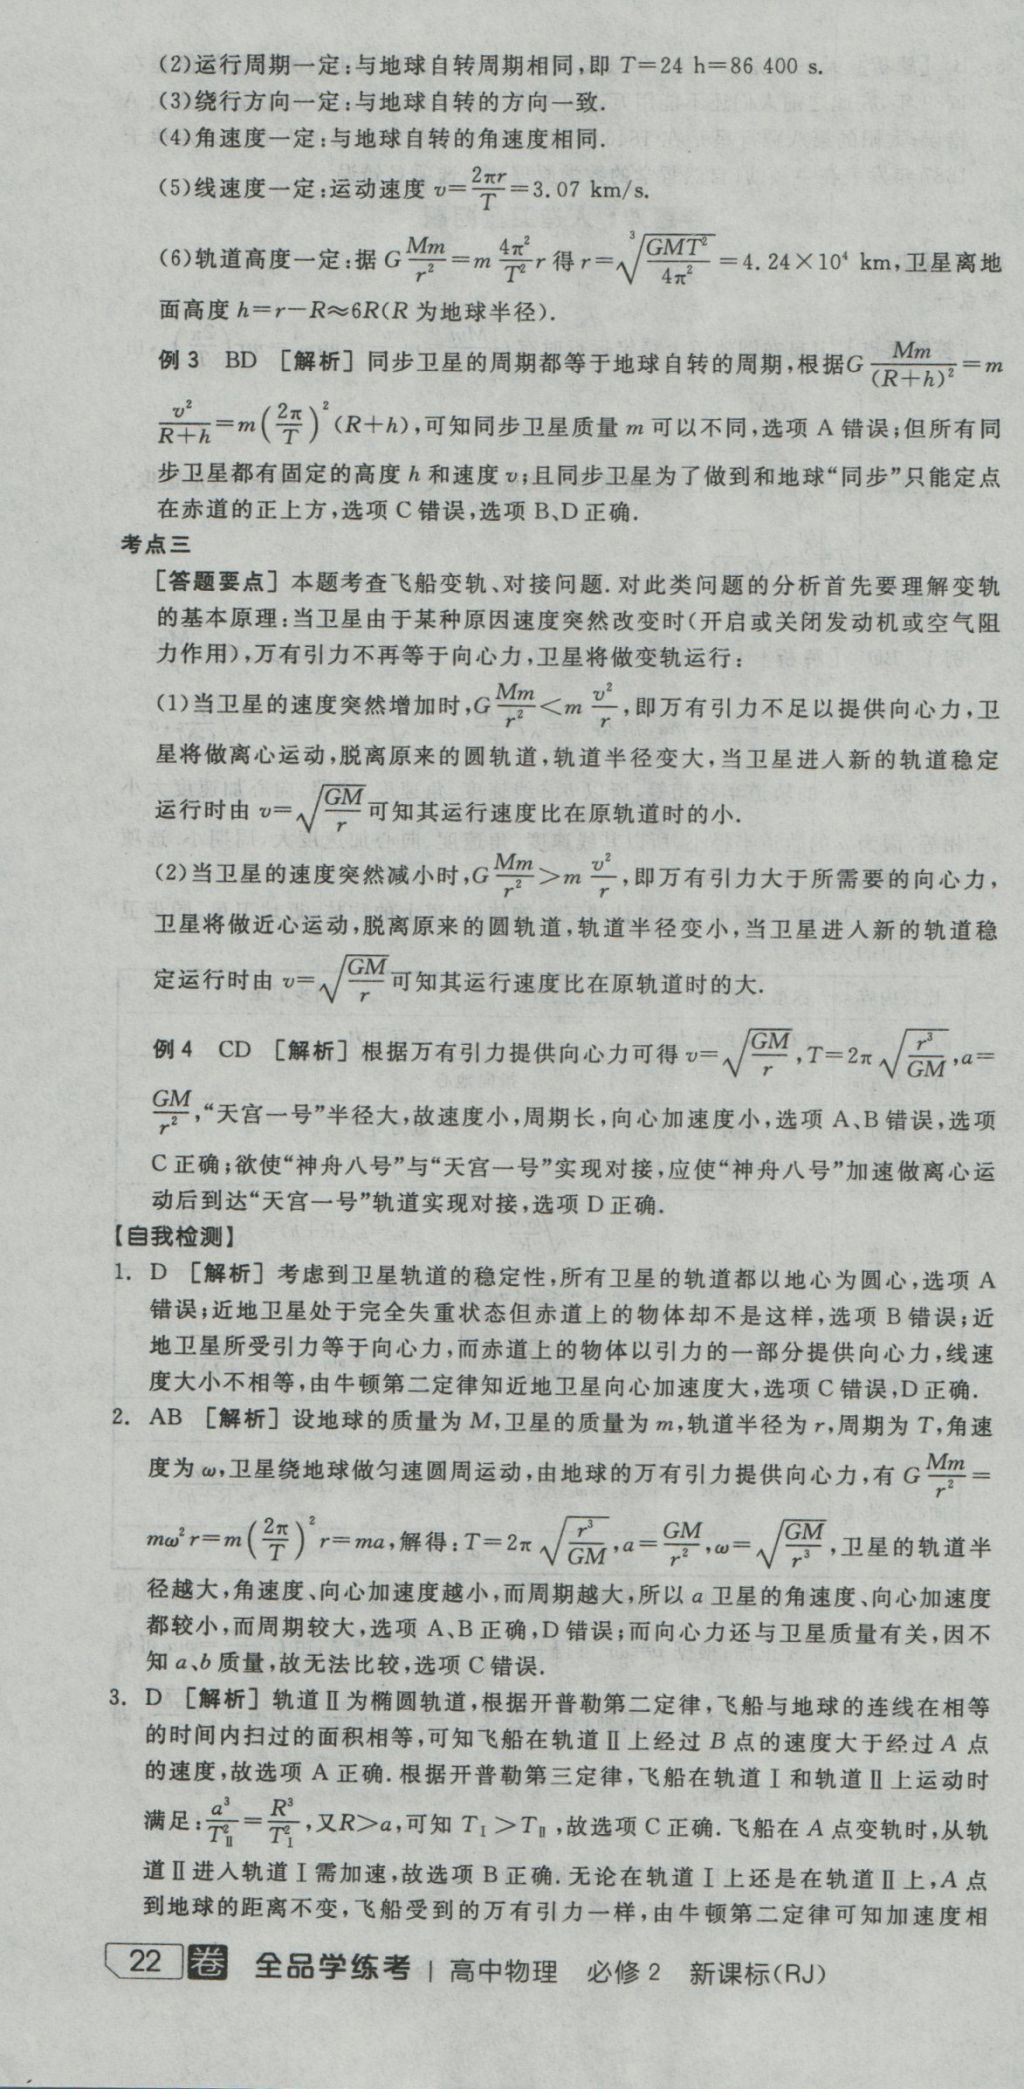 (2)运行周期一定:与地球自转周期相同,即 T=24 h=86 400 s.
(3)绕行方向一定:与地球自转的方向一致.
(4)角速度一定:与地球自转的角速度相同.
(5)线速度一定:运动速度 v=2πr/T=3.07 km/s.
(6)轨道高度一定:据 G Mm/r²=m 4π²/T² r 得 r=∛(GMT²/4π²)=4.24×10⁴ km,卫星离地
面高度 h=r−R≈6R(R 为地球半径).
例 3 BD [解析] 同步卫星的周期都等于地球自转的周期,根据G Mm/(R+h)²=m
v²/(R+h)=m(2π/T)²(R+h),可知同步卫星质量 m 可以不同,选项 A 错误;但所有同
步卫星都有固定的高度 h 和速度 v;且同步卫星为了做到和地球“同步”只能定点
在赤道的正上方,选项 C 错误,选项 B、D 正确.
考点三
[答题要点] 本题考查飞船变轨、对接问题.对此类问题的分析首先要理解变轨
的基本原理:当卫星由于某种原因速度突然改变时(开启或关闭发动机或空气阻
力作用),万有引力不再等于向心力,卫星将做变轨运行:
(1)当卫星的速度突然增加时,G Mm/r²<m v²/r,即万有引力不足以提供向心力,卫
星将做离心运动,脱离原来的圆轨道,轨道半径变大,当卫星进入新的轨道稳定
运行时由 v=√(GM/r)可知其运行速度比在原轨道时的小.
(2)当卫星的速度突然减小时,G Mm/r²>m v²/r,即万有引力大于所需要的向心力,
卫星将做近心运动,脱离原来的圆轨道,轨道半径变小,当卫星进入新的轨道稳
定运行时由 v=√(GM/r)可知其运行速度比在原轨道时的大.
例 4 CD [解析] 根据万有引力提供向心力可得 v=√(GM/r),T=2π√(r³/GM),a=
GM/r²,“天宫一号”半径大,故速度小,周期长,向心加速度小,选项 A、B 错误,选项
C 正确;欲使“神舟八号”与“天宫一号”实现对接,应使“神舟八号”加速做离心运
动后到达“天宫一号”轨道实现对接,选项 D 正确.
【自我检测】
1. D [解析] 考虑到卫星轨道的稳定性,所有卫星的轨道都以地心为圆心,选项 A
错误;近地卫星处于完全失重状态但赤道上的物体却不是这样,选项 B 错误;近
地卫星所受引力等于向心力,而赤道上的物体以引力的一部分提供向心力,线速
度大小不相等,由牛顿第二定律知近地卫星向心加速度大,选项 C 错误,D 正确.
2. AB [解析] 设地球的质量为 M,卫星的质量为 m,轨道半径为 r,周期为 T,角速
度为 ω,卫星绕地球做匀速圆周运动,由地球的万有引力提供向心力,有 G Mm/r²=
mω²r=m(2π/T)²r=ma,解得:T=2π√(r³/GM),a=GM/r²,ω=√(GM/r³),卫星的轨道半
径越大,角速度、向心加速度越小,而周期越大,所以 a 卫星的角速度、向心加速度
都较小,而周期较大,选项 A、B 正确,D 错误;而向心力还与卫星质量有关,因不
知 a、b 质量,故无法比较,选项 C 错误.
3. D [解析] 轨道Ⅱ为椭圆轨道,根据开普勒第二定律,飞船与地球的连线在相等
的时间内扫过的面积相等,可知飞船在轨道Ⅱ上经过 B 点的速度大于经过 A 点
的速度,故选项 A 正确.根据开普勒第三定律,飞船在轨道Ⅰ和轨道Ⅱ上运动时
满足:a³/T_Ⅱ²=R³/T_Ⅰ²,又R>a,可知 T_Ⅰ>T_Ⅱ,故选项 C 正确.飞船在 A 点变轨时,从轨
道Ⅱ进入轨道Ⅰ需加速,故选项 B 正确.无论在轨道Ⅰ上还是在轨道Ⅱ上,A 点
到地球的距离不变,飞船受到的万有引力一样,由牛顿第二定律可知加速度相
22 卷 全品学练考 | 高中物理 必修 2 新课标(RJ)